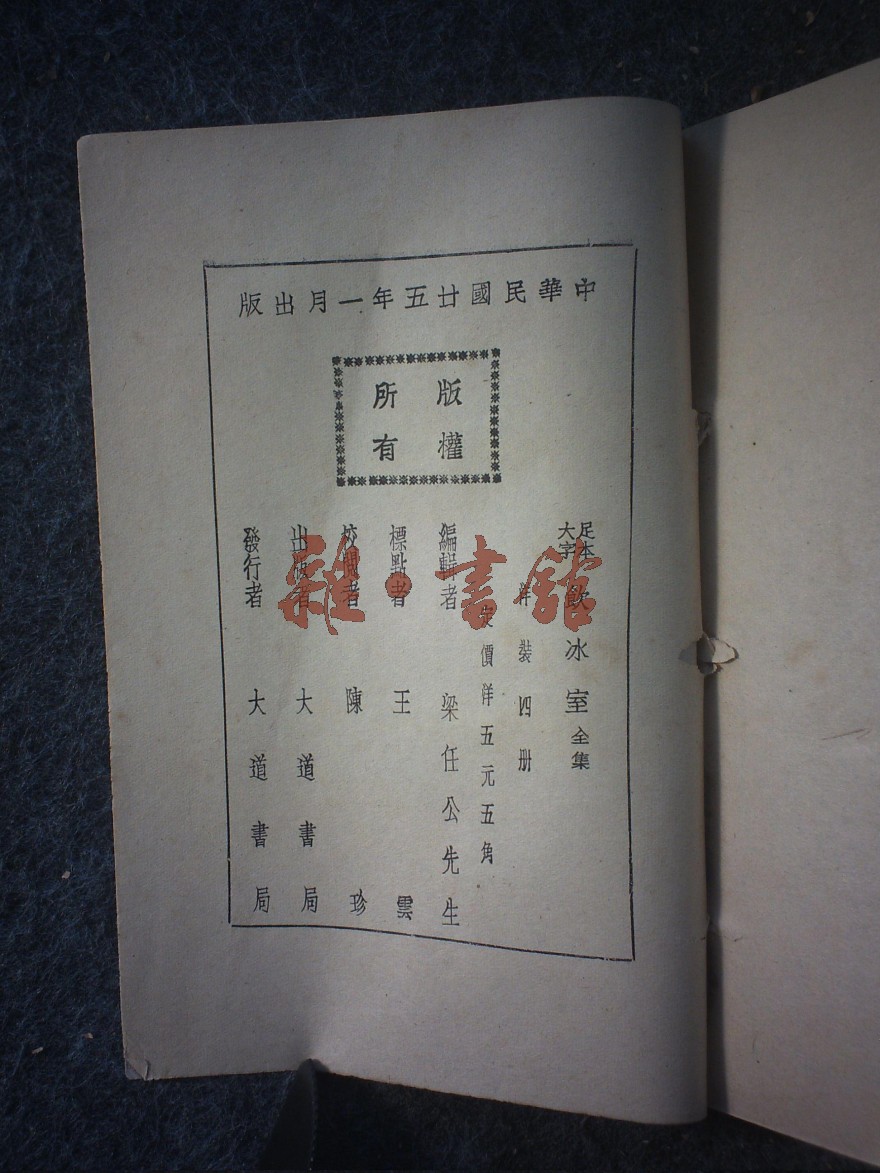 中華民國廿五年一月出版
版權
所有
足本
大字
飲冰室全集
洋裝四册
定價洋五元五角
編輯者 梁任公先生
標點者 王雲
校閱者 陳珍
出版者 大道書局
發行者 大道書局
雜·書館